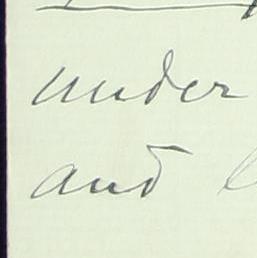 under
and